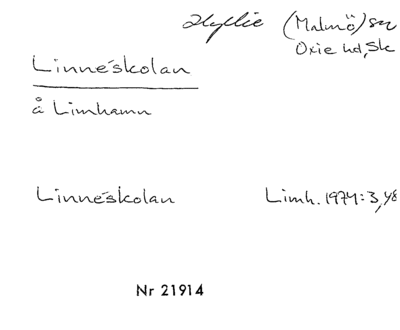 Hyllie (Malmö) sn
Oxie hd, Sk
Linnéskolan
å Limhamn
Linnéskolan Limh. 1974: 3,48
Nr 21914